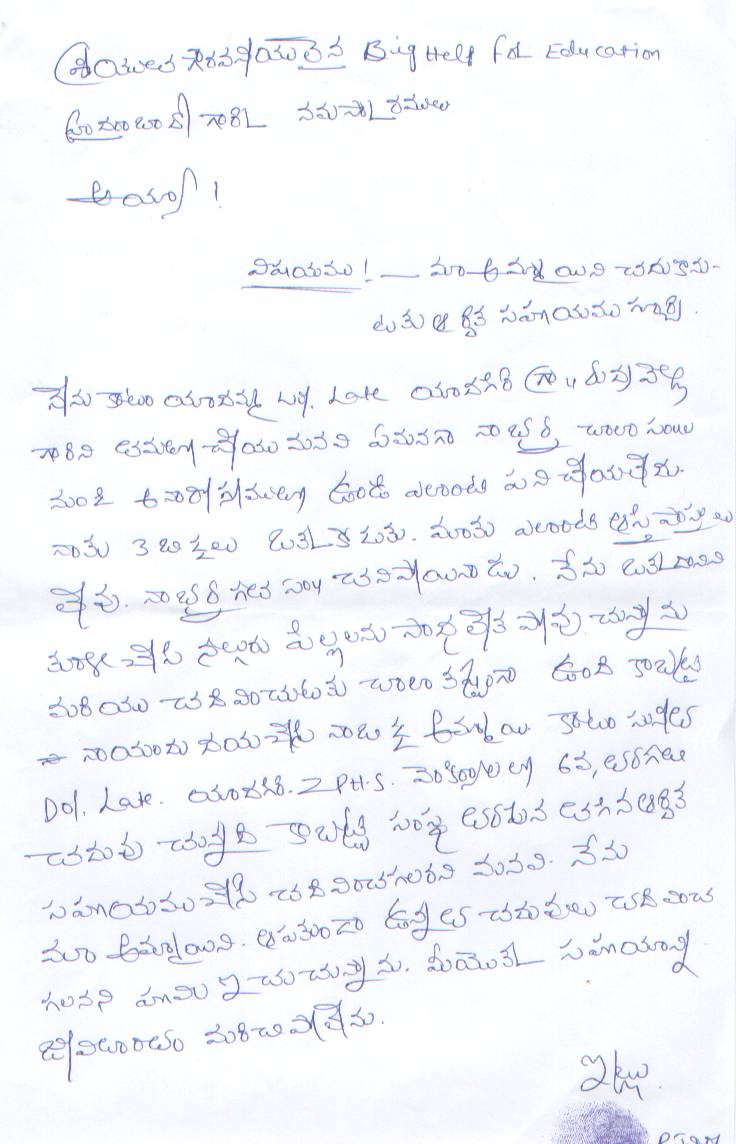 శ్రీయుత గౌరవనీయులైన Big Help for Education
హైదరాబాద్ గారికి నమస్కారములు
అయ్యా!
విషయము! — మా అమ్మాయిని చదుకొను-
టకు ఆర్థిక సహాయము గూర్చి.
నేను కాటం యాదమ్మ Late యాదగిరి గ్రా॥
గారిని తమరితో చేయు మనవి ఏమనగా నా భర్త చాలా సం॥ల
నుండి అనారోగ్యముతో ఉండి ఎలాంటి పని చేయలేదు.
నాకు 3 బిడ్డలు ఒక్క కొడుకు. మాకు ఎలాంటి ఆస్తి పాస్తులు
లేవు. నా భర్త గత సం॥ చనిపోయినాడు. నేను ఒక్కదానిని
కూలీ చేసి నల్గురు పిల్లలను సాధ లేక పోవు చున్నాను
మరియు చదివించుటకు చాలా కష్టంగా ఉంది కాబట్టి
నాయందు దయచేసి నా బిడ్డ అమ్మాయి కాటం సునీత
D/o. Late. యాదగిరి. Z.P.H.S. లో 6వ, తరగతి
చదువు చున్నది కాబట్టి సంస్థ తరపున తగిన ఆర్థిక
సహాయము చేసి చదివించగలరని మనవి. నేను
మా అమ్మాయిని. ఆపకుండా ఉన్నత చదువులు చదివించ
గలనని హామి ఇచుచున్నాను. మీయొక్క సహాయాన్ని
జీవితాంతం మరిచిపోలేను.
ఇట్లు